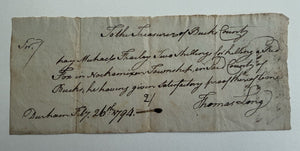 To the Treasurer of Bucks County
Sir/
pay Michael Fraley Two Shillings for killing a Red
Fox in Nockamixon Township, in sd County of
Bucks, he having given Satisfactory proof thereof done
2/
Durham Feby. 26th 1794.
Thomas Long